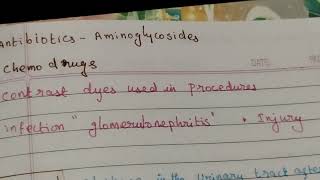 Antibiotics - Aminoglycosides
Chemo drugs
DATE
contrast dyes used in procedures
infection "glomerulonephritis" • Injury
in the urinary tract after